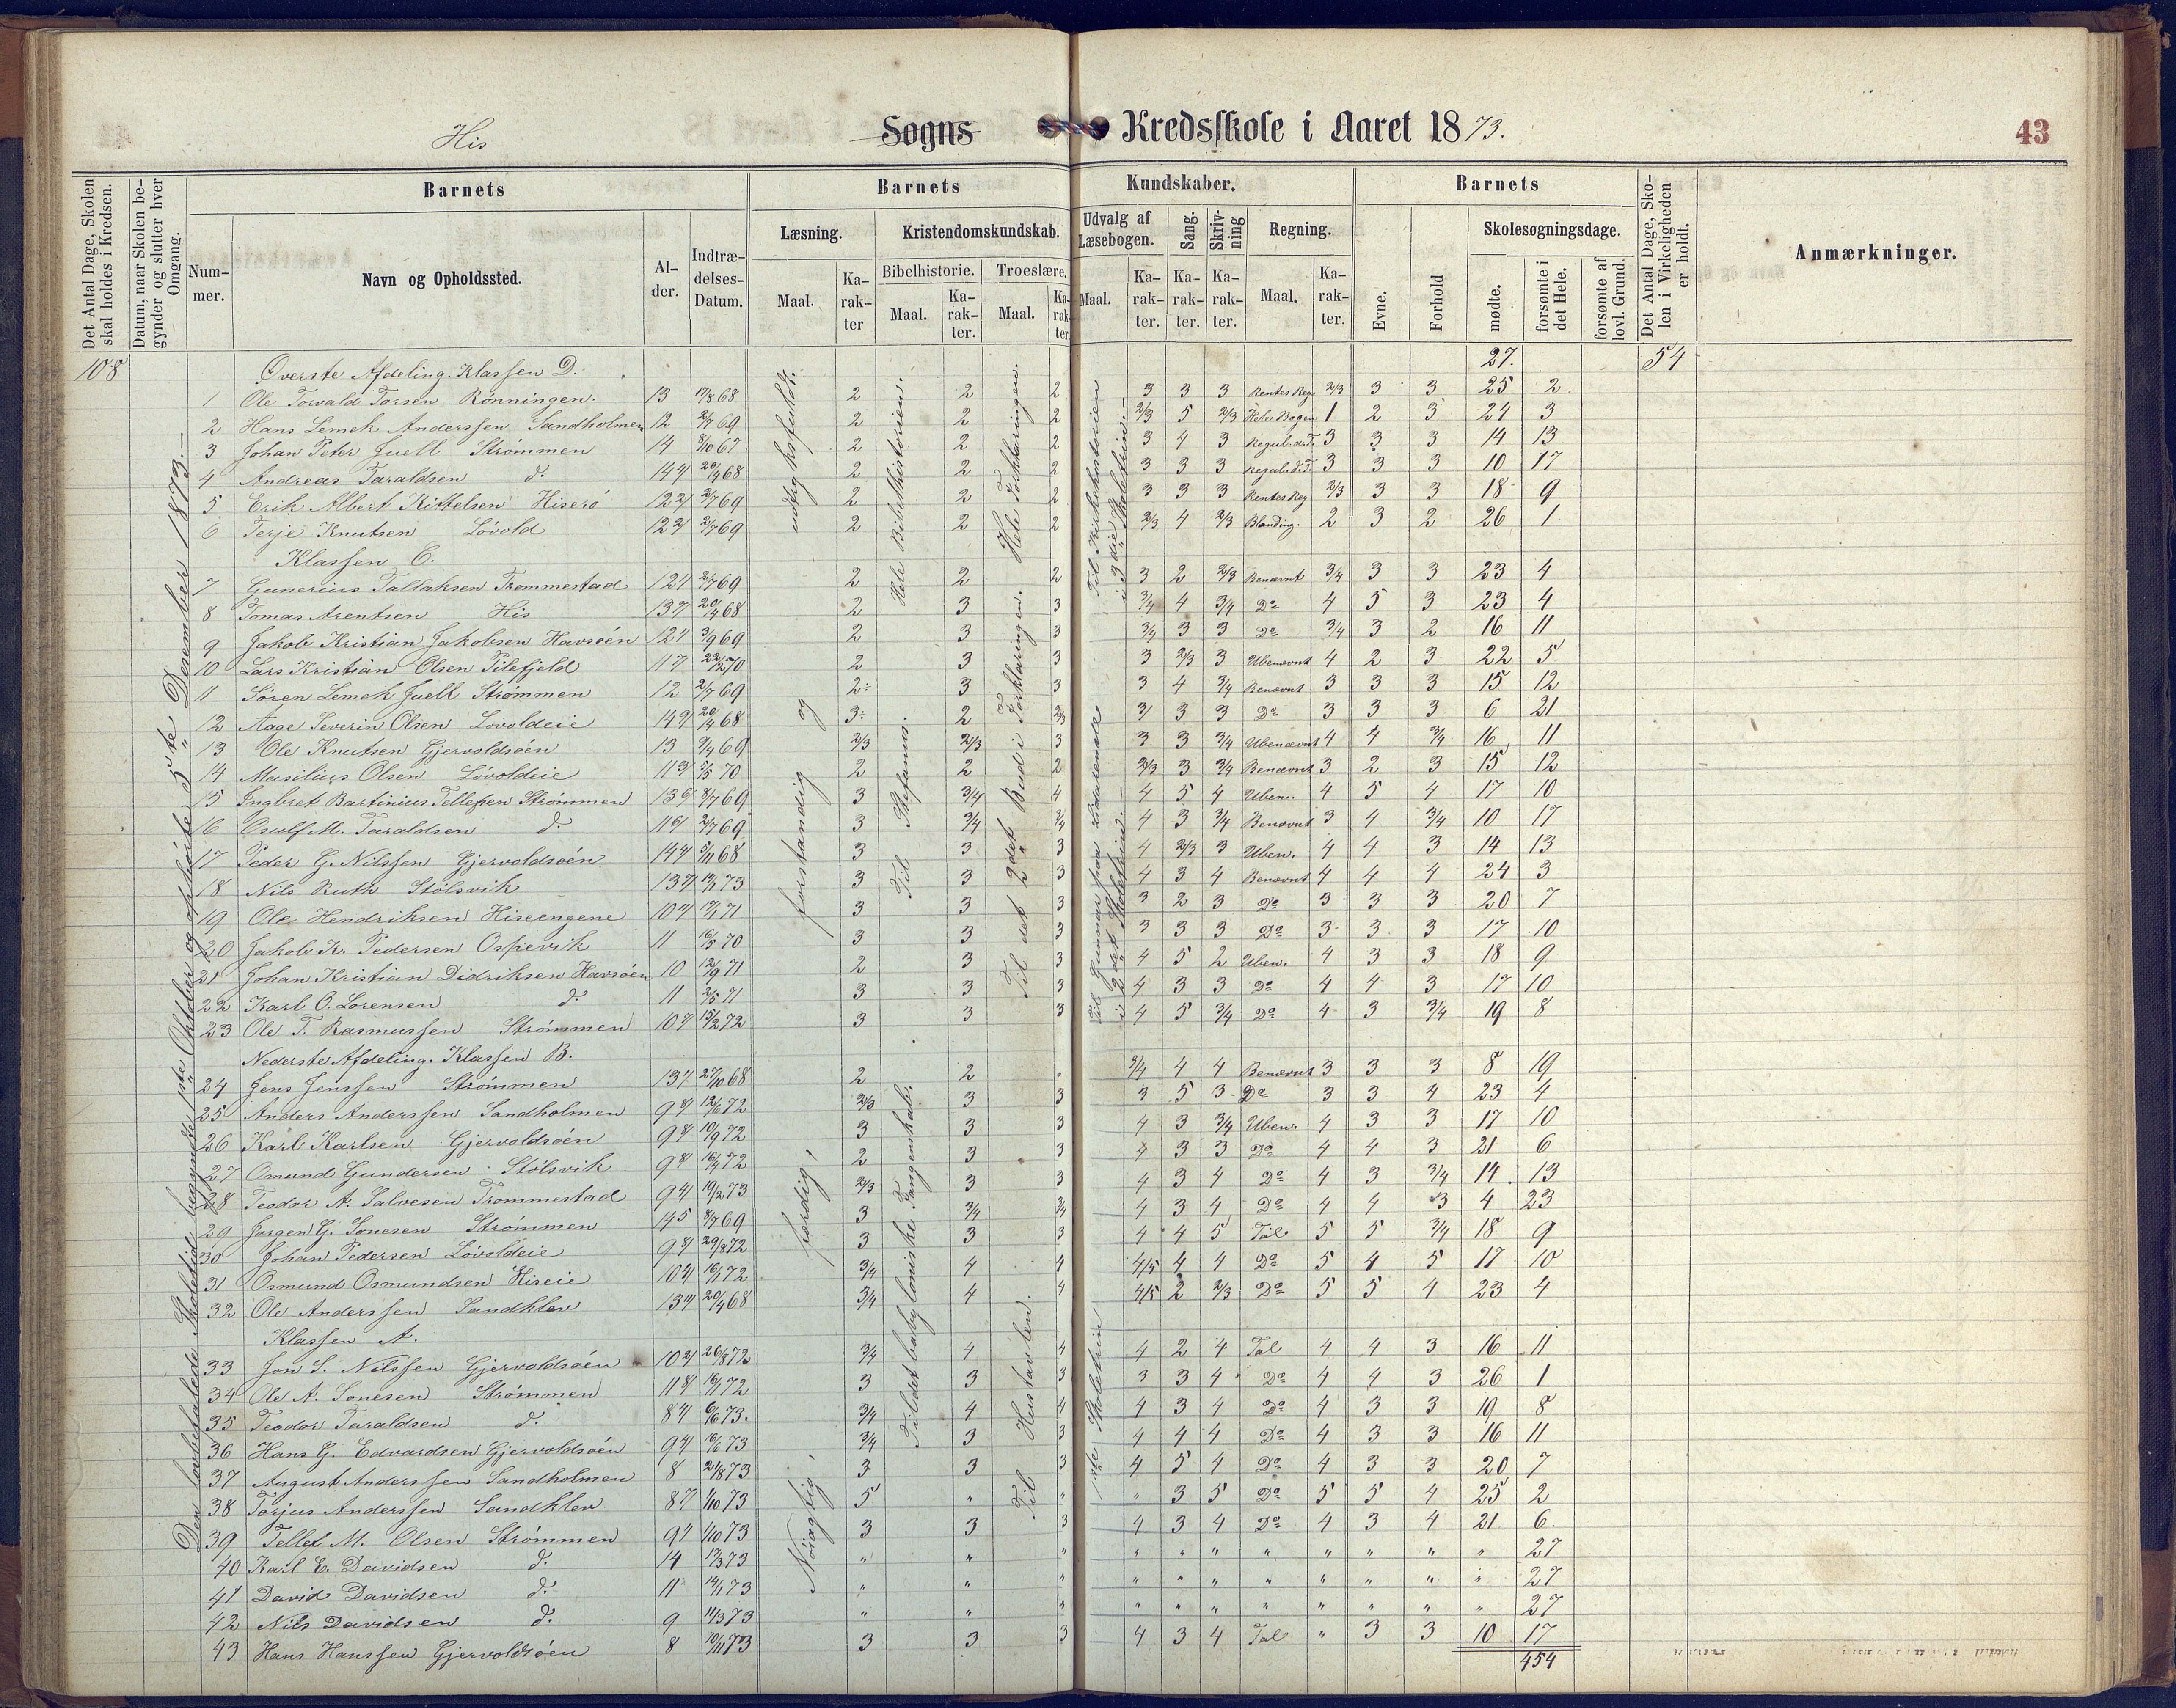 His Sogns Kredsskole i Aaret 1873. 43
Det Antal Dage, Skolen skal holdes i Kredsen.
Datum, naar Skolen begynder og slutter hver Omgang.
Barnets
Barnets Kundskaber.
Barnets
Det Antal Dage, Skolen i Virkeligheden er holdt.
Anmærkninger.
Nummer.
Navn og Opholdssted.
Alder.
Indtrædelses-Datum.
Læsning.
Kristendomskundskab.
Udvalg af Læsebogen.
Sang.
Skrivning
Regning.
Evne.
Forhold
Skolesøgningsdage.
Bibelhistorie.
Troeslære.
Maal.
Karakter
Maal.
Karakter.
Maal.
Karakter.
Maal.
Karakter.
Karakter.
Karakter.
Maal.
Karakter.
mødte.
forsømte i det Hele.
forsømte af lovl. Grund.
108 Øverste Afdeling. Klassen D. 27. 54
1 Ole Torvald Torsen Rönningen. 13 68 2 2 2 3 3 3 Rentes Reg. 2/3 3 3 25 2
2 Hans Lemek Anderssen Sandholmen 12 2/7 69 2 2 2 2/3 5 2/3 Hele Bogen 1 2 3 24 3
3 Johan Peter Juell Strømmen 14 8/10 67 2 2 2 3 4 3 Regula d. T. 3 3 3 14 13
4 Andreas Taraldsen d. 14 20/4 68 2 2 2 3 3 3 Regula d. T. 3 3 3 10 17
5 Erik Albert Kittelsen Hiserö 12 2/7 69 2 2 2 3 3 3 Rentes Reg 2/3 3 3 18 9
6 Terje Knutsen Lövold 12 2/7 69 2 2 2 2/3 4 2/3 Blanding. 2 3 2 26 1
Klassen C.
7 Gunerius Tallaksen Trommestad 12 2/7 69 2 2 2 3 2 2/3 Benævnt 3/4 3 3 23 4
8 Tomas Arentsen His 13 20/4 68 2 3 3 3/4 4 3/4 Do 4 5 3 23 4
9 Jakob Kristian Jakobsen Havsöen 12 3/9 69 2 3 3 3/4 3 3 Do 3/4 3 2 16 11
10 Lars Kristian Olsen Pilefjeld 11 22/2 70 2 3 3 3 2/3 3 Ubenævnt 4 2 3 22 5
11 Sören Lemek Juell Strømmen 12 2/7 69 2 3 3 3 4 3/4 Benævnt 3 3 3 15 12
12 Aage Severin Olsen Lövoldeie 14 20/4 68 3 2 2/3 3 3 3 Do 3 3 3 6 21
13 Ole Knutsen Gjervoldsöen 13 69 2/3 2/3 3 3 3 3/4 Ubenævnt 4 4 3/4 16 11
14 Masilius Olsen Lövoldeie 11 70 2 2 2 2/3 3 3/4 Benævnt 3 2 3 15 12
15 Ingbret Bartinius Tellefsen Strømmen 13 8/7 69 3 3/4 4 4 5 4 Uben. 4 5 4 17 10
16 Osulf M. Taraldsen d. 11 2/7 69 3 3/4 3/4 4 3 3/4 Benævnt 3 4 3/4 10 17
17 Peder G. Nilssen Gjervoldsöen 14 5/11 68 3 3 3 4 2/3 3 Uben. 4 4 3 14 13
18 Nils Ruth Stölsvik 13 73 3 3 3 4 3 4 Benævnt 4 4 4 24 3
19 Ole Hendriksen Hiseengene 10 71 3 3 3 3 2 3 Do 3 3 3 20 7
20 Jakob K. Pedersen Ospevik 11 16/5 70 3 3 3 3 3 3 Do 3 3 3 17 10
21 Johan Kristian Didriksen Havsöen 10 12/9 71 2 3 3 4 5 2 Uben. 4 3 3 18 9
22 Karl O. Lorensen d. 11 2/5 71 3 3 3 4 3 3 Do 4 4 3 17 10
23 Ole T. Rasmussen Strömmen 10 15/2 72 3 3 3 4 5 3/4 Do 4 3 3/4 19 8
Nederste Afdeling. Klassen B.
24 Jens Jenssen Strömmen 13 27/10 68 2 2 3/4 4 4 Benævnt 3 3 3 8 19
25 Anders Anderssen Sandholmen 9 12/6 72 2/3 3 3 3 5 3 Do 3 3 4 23 4
26 Karl Karlsen Gjervoldsöen 9 10/9 72 3 3 3 4 3 3/4 Uben. 4 3 3 17 10
27 Omund Gundersen Stölsvik 9 72 2 3 3 4 3 3 Do 4 4 3 21 6
28 Teodor A. Salvesen Trommestad 9 19/2 73 2/3 3 3 4 3 4 Do 4 3 3/4 14 13
29 Jörgen G. Sonesen Strömmen 14 8/7 69 3 3/4 3/4 4 3 4 Do 4 4 3 4 23
30 Johan Pedersen Lövoldeie 9 29/8 72 3 3 3 4 4 5 Tal 5 5 3/4 18 9
31 Osmund Osmundsen Hiseie 10 72 3/4 4 4 4/5 4 4 Do 5 4 5 17 10
32 Ole Anderssen Sandklev 13 20/4 68 3/4 4 4 4/5 2 2/3 Do 5 5 4 23 4
Klassen A.
33 Jon S. Nilssen Gjervoldsöen 10 26/8 72 3/4 4 4 4 2 4 Tal 4 4 3 16 11
34 Ole A. Sonesen Strömmen 11 72 3 3 3 3 3 4 Do 4 4 3 26 1
35 Teodor Taraldsen d. 8 73. 3/4 4 4 4 3 4 Do 4 3 3 19 8
36 Hans G. Edvardsen Gjervoldsöen 9 73 3/4 3 3 4 4 4 Do 4 3 3 16 11
37 August Anderssen Sandholmen 8 21/8 73 3 3 3 4 5 4 Do 4 3 3 20 7
38 Torjus Anderssen Sandklev 8 1/10 73 5 " " " 3 5 Do 5 5 4 25 2
39 Tellef M. Olsen Strömmen 9 1/10 73 3 3 3 4 3 4 Do 4 3 4 21 6
40 Karl E. Davidsen d. 14 73 " " " " " " " " " " " 27
41 David Davidsen d. 11 73 " " " " " " " " " " " 27
42 Nils Davidsen d. 9 73 " " " " " " " " " " " 27
43 Hans Hanssen Gjervoldsöen 8 10/11 73 3 3 3 4 3 4 Tal " 3 3 10 17
454
Den lovbestaldede Skoletid begyndte 1ste Oktober og ophörte 5te Desember 1873.
Nöiagtig, færdig, forstandig og udtryksfuldt.
Til det babyloniske Fangenskab.
Til Stefanus.
Hele Bibelhistorien.
Til Hustavlen.
Til det 2det Bud i Forklaringen.
Hele Forklaringen.
1ste Skoletrin
Til Gunnar paa Lidarende i 2det Skoletrin.
Til Kirkehistorien i 3die Skoletrin.